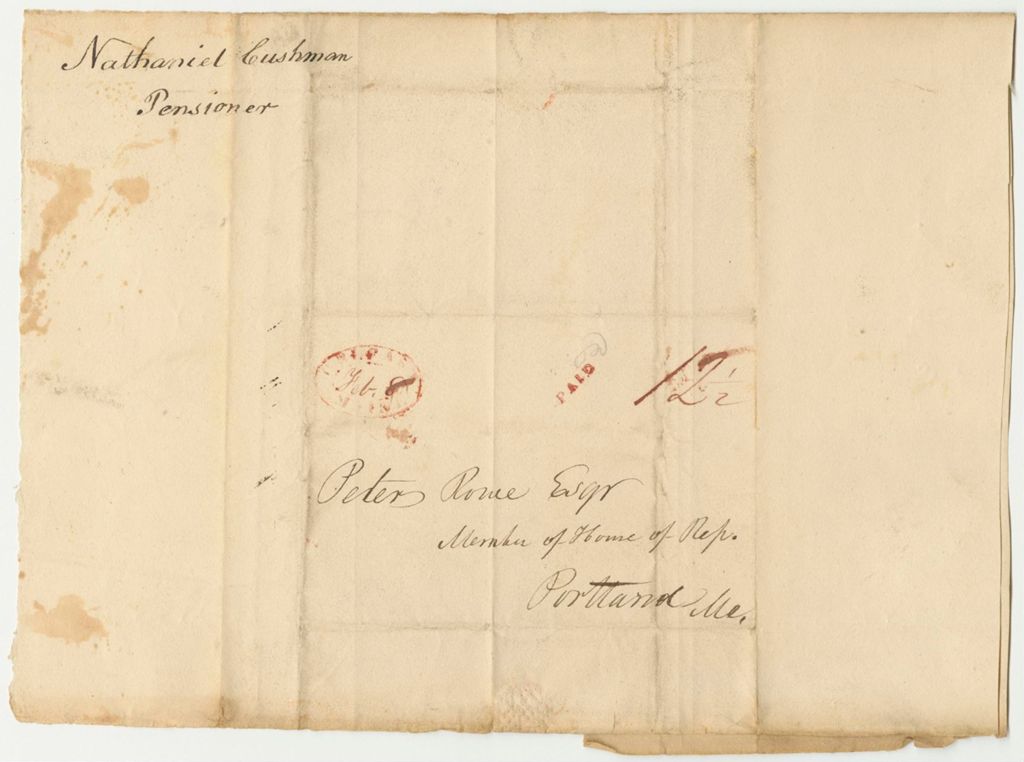 Nathaniel Cushman
Pensioner
Feb. 8
PAID
12½
Peter Rowe Esqr
Member of House of Rep.
Portland Me.